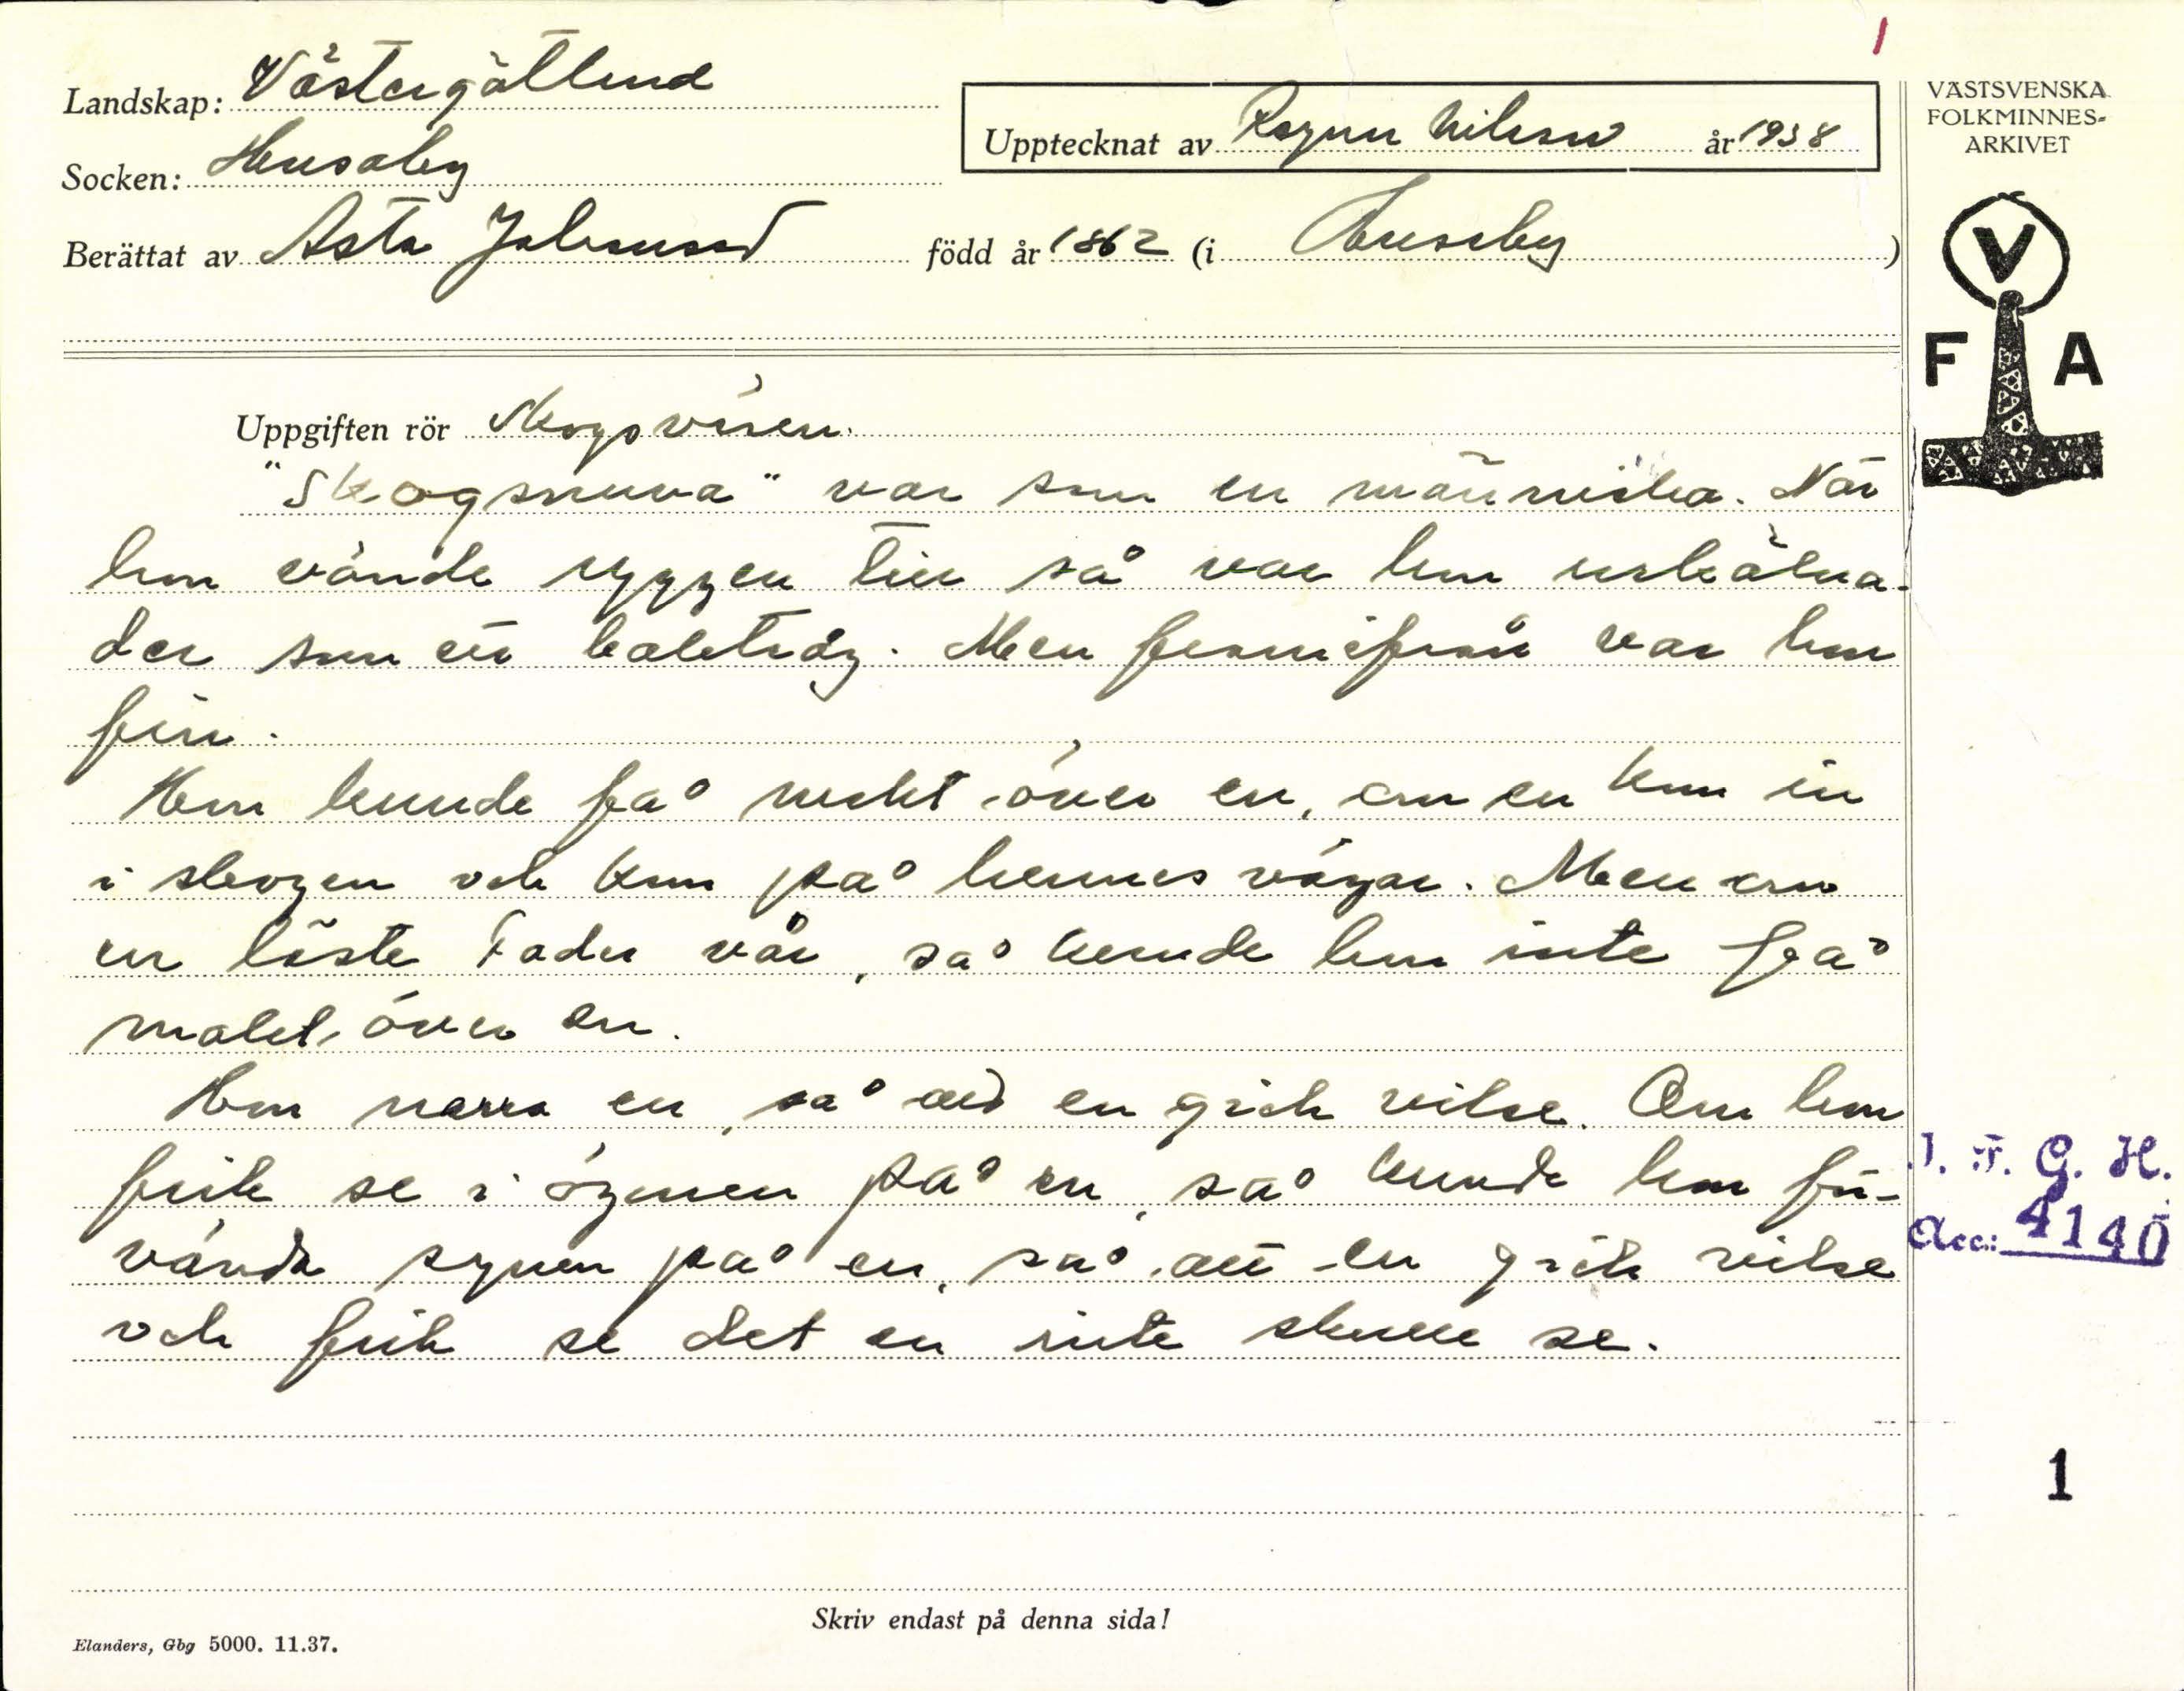 1
Landskap: Västergötland
Socken: Husaby
Upptecknat av Ragnar Nilsson år 1938
Berättat av Asta Johansson född år 1862 (i Husaby)
VÄSTSVENSKA
FOLKMINNES-
ARKIVET
V
F A
Uppgiften rör Skogsväsen.
"Skogsnuva" var som en människa. När
hon vände ryggen till så var hon urhålna-
der som ett baktråg. Men framifrån var hon
fin.
Hon kunde få makt över en, om en kom in
i skogen och kom på hennes vägar. Men om
en läste Fader vår, så kunde hon inte få
makt över en.
Hon narra en, så att en gick vilse. Om hon
fick se i ögonen på en, så kunde hon för-
vända synen på en, så att en gick vilse
och fick se det en inte skulle se.
I. F. G. H.
Acc: 4140
1
Skriv endast på denna sida!
Elanders, Gbg 5000. 11.37.